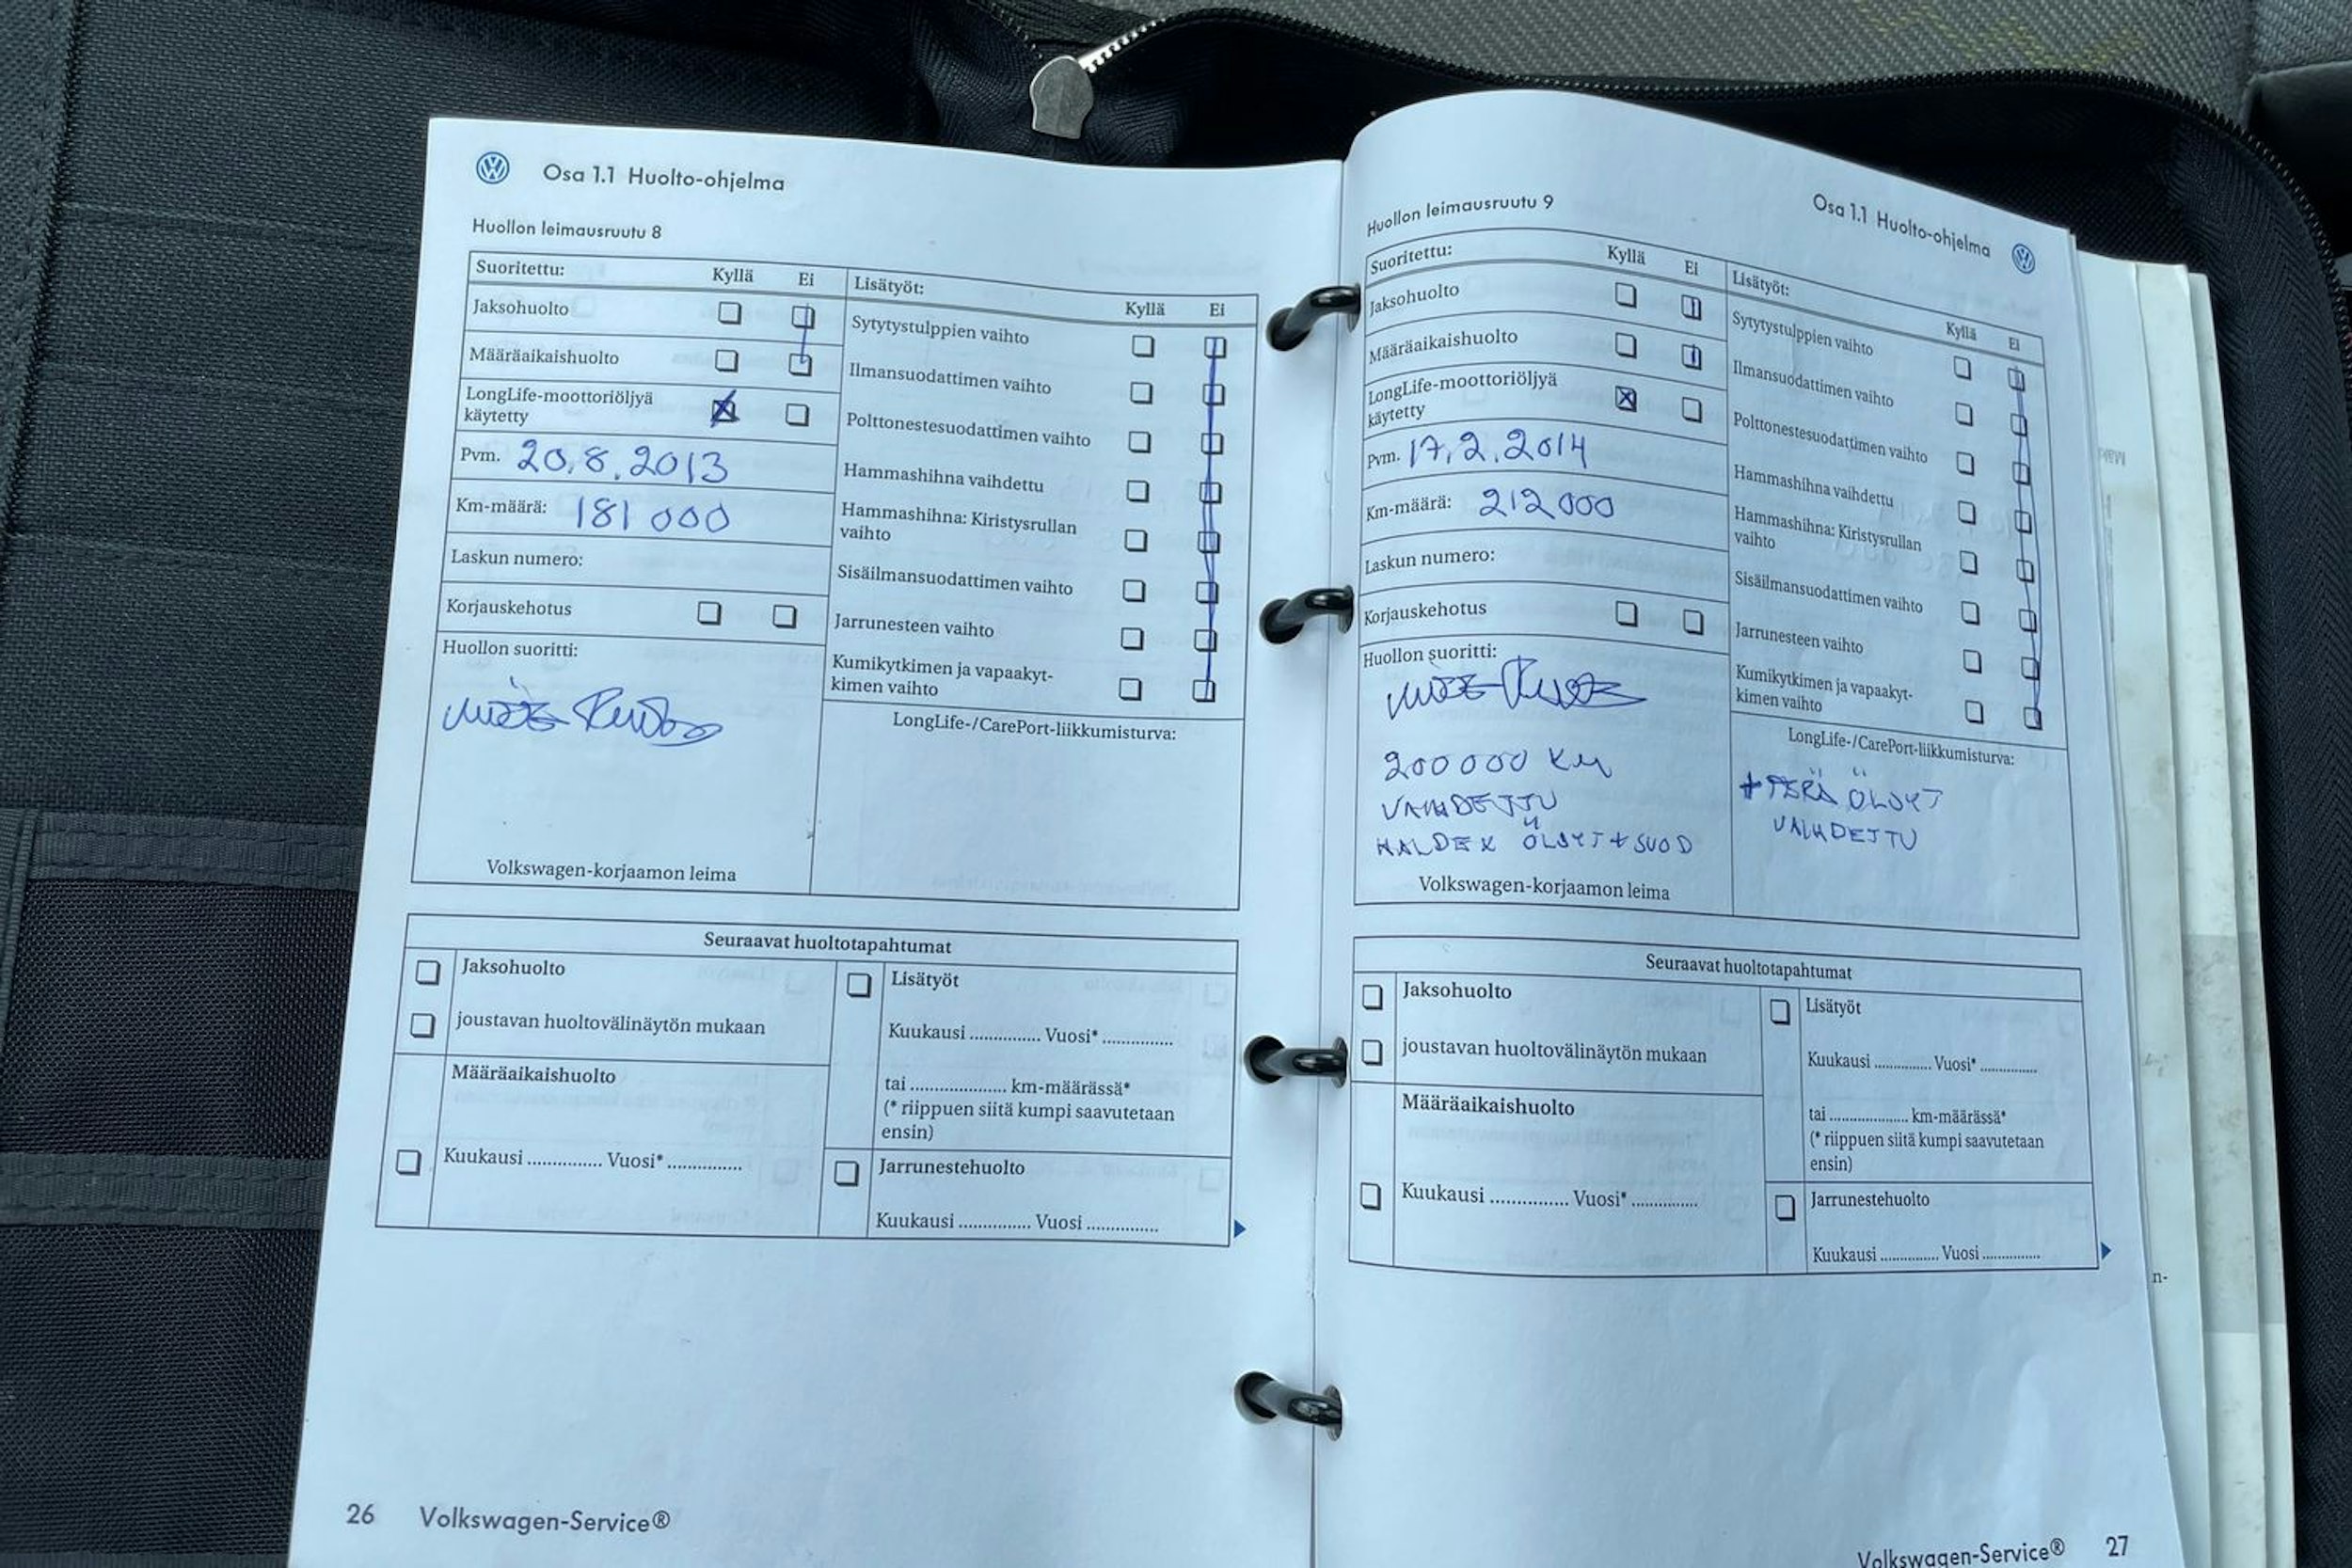 Osa 1.1 Huolto-ohjelma
Huollon leimausruutu 8
Suoritettu: Kyllä Ei
Jaksohuolto
Määräaikaishuolto
LongLife-moottoriöljyä
käytetty
Pvm. 20.8.2013
Km-määrä: 181 000
Laskun numero:
Korjauskehotus
Huollon suoritti:
Volkswagen-korjaamon leima
Lisätyöt: Kyllä Ei
Sytytystulppien vaihto
Ilmansuodattimen vaihto
Polttonestesuodattimen vaihto
Hammashihna vaihdettu
Hammashihna: Kiristysrullan
vaihto
Sisäilmansuodattimen vaihto
Jarrunesteen vaihto
Kumikytkimen ja vapaakyt-
kimen vaihto
LongLife-/CarePort-liikkumisturva:
Seuraavat huoltotapahtumat
Jaksohuolto
joustavan huoltovälinäytön mukaan
Määräaikaishuolto
Kuukausi .............. Vuosi* ..............
Lisätyöt
Kuukausi .............. Vuosi* ..............
tai ................... km-määrässä*
(* riippuen siitä kumpi saavutetaan
ensin)
Jarrunestehuolto
Kuukausi .............. Vuosi ..............
26 Volkswagen-Service®
Osa 1.1 Huolto-ohjelma
Huollon leimausruutu 9
Suoritettu: Kyllä Ei
Jaksohuolto
Määräaikaishuolto
LongLife-moottoriöljyä
käytetty
Pvm. 17.2.2014
Km-määrä: 212000
Laskun numero:
Korjauskehotus
Huollon suoritti:
200000 KM
VAIHDETTU
HALDEX ÖLJYT + SUOD
Volkswagen-korjaamon leima
Lisätyöt: Kyllä Ei
Sytytystulppien vaihto
Ilmansuodattimen vaihto
Polttonestesuodattimen vaihto
Hammashihna vaihdettu
Hammashihna: Kiristysrullan
vaihto
Sisäilmansuodattimen vaihto
Jarrunesteen vaihto
Kumikytkimen ja vapaakyt-
kimen vaihto
LongLife-/CarePort-liikkumisturva:
+ PERÄ ÖLJYT
VAIHDETTU
Seuraavat huoltotapahtumat
Jaksohuolto
joustavan huoltovälinäytön mukaan
Määräaikaishuolto
Kuukausi .............. Vuosi* ..............
Lisätyöt
Kuukausi .............. Vuosi* ..............
tai ................... km-määrässä*
(* riippuen siitä kumpi saavutetaan
ensin)
Jarrunestehuolto
Kuukausi .............. Vuosi ..............
Volkswagen-Service® 27